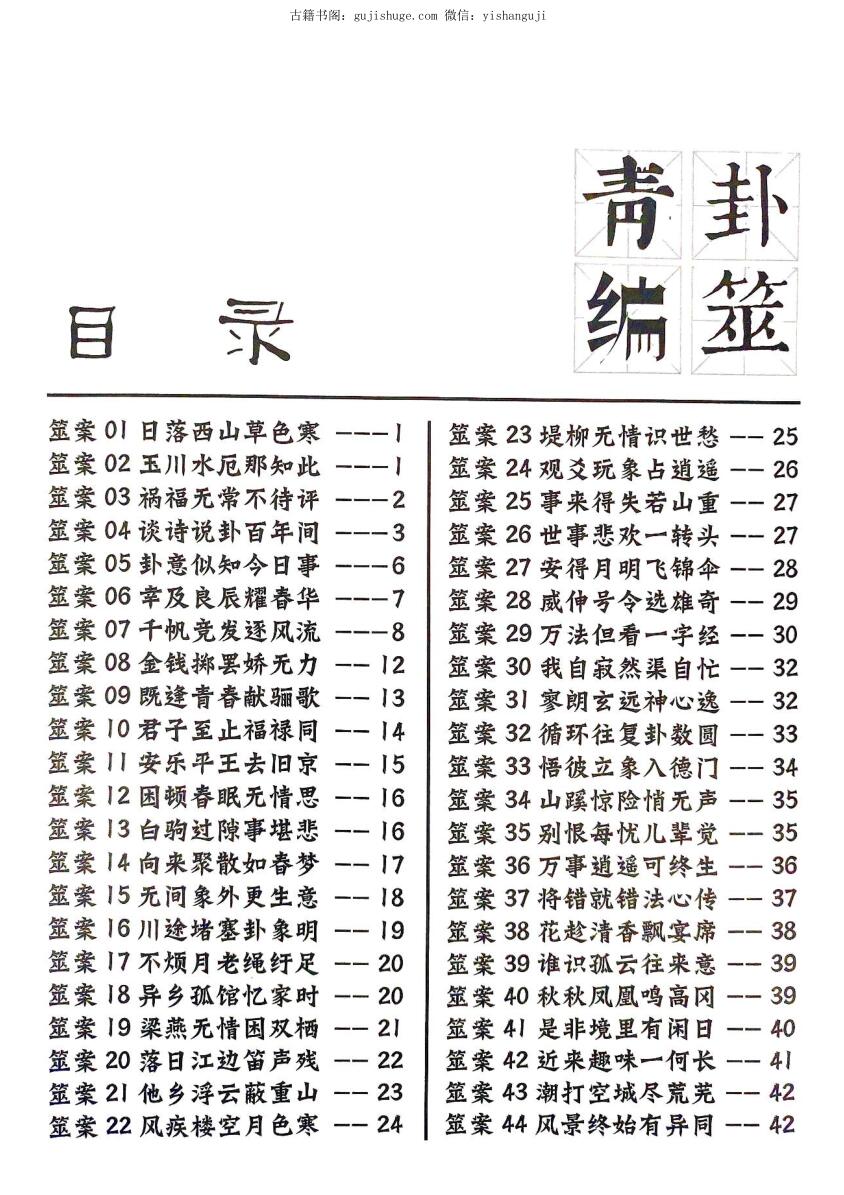 古籍书阁：gujishuge.com 微信：yishanguji
青 卦
编 筮
目 录
筮案 01 日落西山草色寒 ———1
筮案 02 玉川水厄那知此 ———1
筮案 03 祸福无常不待评 ———2
筮案 04 谈诗说卦百年间 ———3
筮案 05 卦意似知今日事 ———6
筮案 06 幸及良辰耀春华 ———7
筮案 07 千帆竞发逐风流 ———8
筮案 08 金钱掷罢娇无力 —— 12
筮案 09 既逢青春献骊歌 —— 13
筮案 10 君子至止福禄同 —— 14
筮案 11 安乐平王去旧京 —— 15
筮案 12 困顿春眠无情思 —— 16
筮案 13 白驹过隙事堪悲 —— 16
筮案 14 向来聚散如春梦 —— 17
筮案 15 无间象外更生意 —— 18
筮案 16 川途堵塞卦象明 —— 19
筮案 17 不烦月老绳纡足 —— 20
筮案 18 异乡孤馆忆家时 —— 20
筮案 19 梁燕无情困双栖 —— 21
筮案 20 落日江边笛声残 —— 22
筮案 21 他乡浮云蔽重山 —— 23
筮案 22 风疾楼空月色寒 —— 24
筮案 23 堤柳无情识世愁 —— 25
筮案 24 观爻玩象占逍遥 —— 26
筮案 25 事来得失若山重 —— 27
筮案 26 世事悲欢一转头 —— 27
筮案 27 安得月明飞锦伞 —— 28
筮案 28 威伸号令选雄奇 —— 29
筮案 29 万法但看一字经 —— 30
筮案 30 我自寂然渠自忙 —— 32
筮案 31 寥朗玄远神心逸 —— 32
筮案 32 循环往复卦数圆 —— 33
筮案 33 悟彼立象入德门 —— 34
筮案 34 山蹊惊险悄无声 —— 35
筮案 35 别恨每忧儿辈觉 —— 35
筮案 36 万事逍遥可终生 —— 36
筮案 37 将错就错法心传 —— 37
筮案 38 花趁清香飘宴席 —— 38
筮案 39 谁识孤云往来意 —— 39
筮案 40 秋秋凤凰鸣高冈 —— 39
筮案 41 是非境里有闲日 —— 40
筮案 42 近来趣味一何长 —— 41
筮案 43 潮打空城尽荒芜 —— 42
筮案 44 风景终始有异同 —— 42